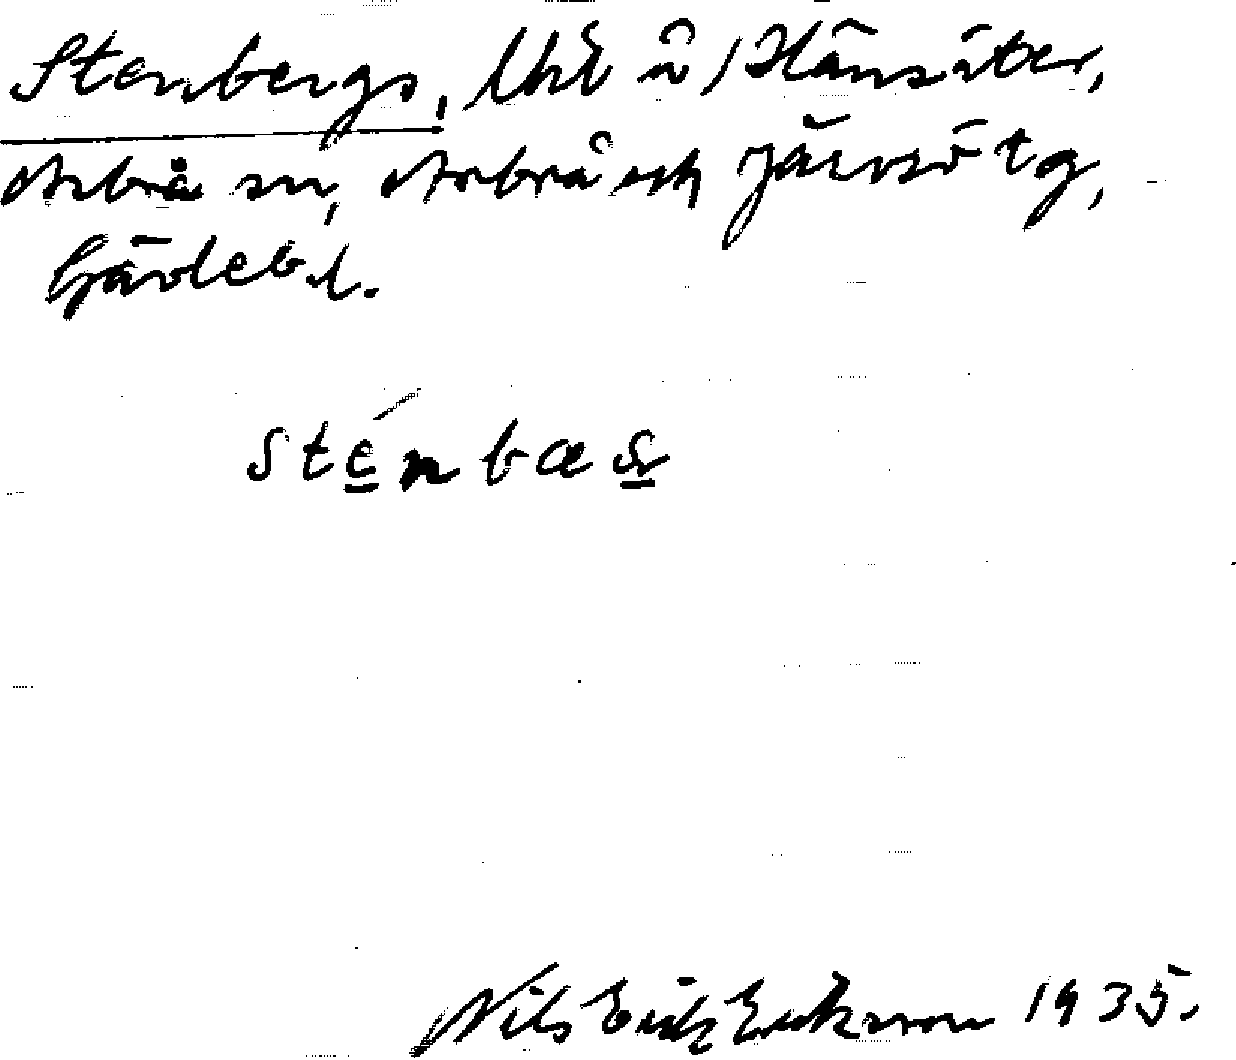 Stenbergs, lht å Hänsäter,
Arbrå sn, Arbrå och Järvsö tg,
Gävleb. l.
sténbæs
Nils Erik Eriksson 1935.